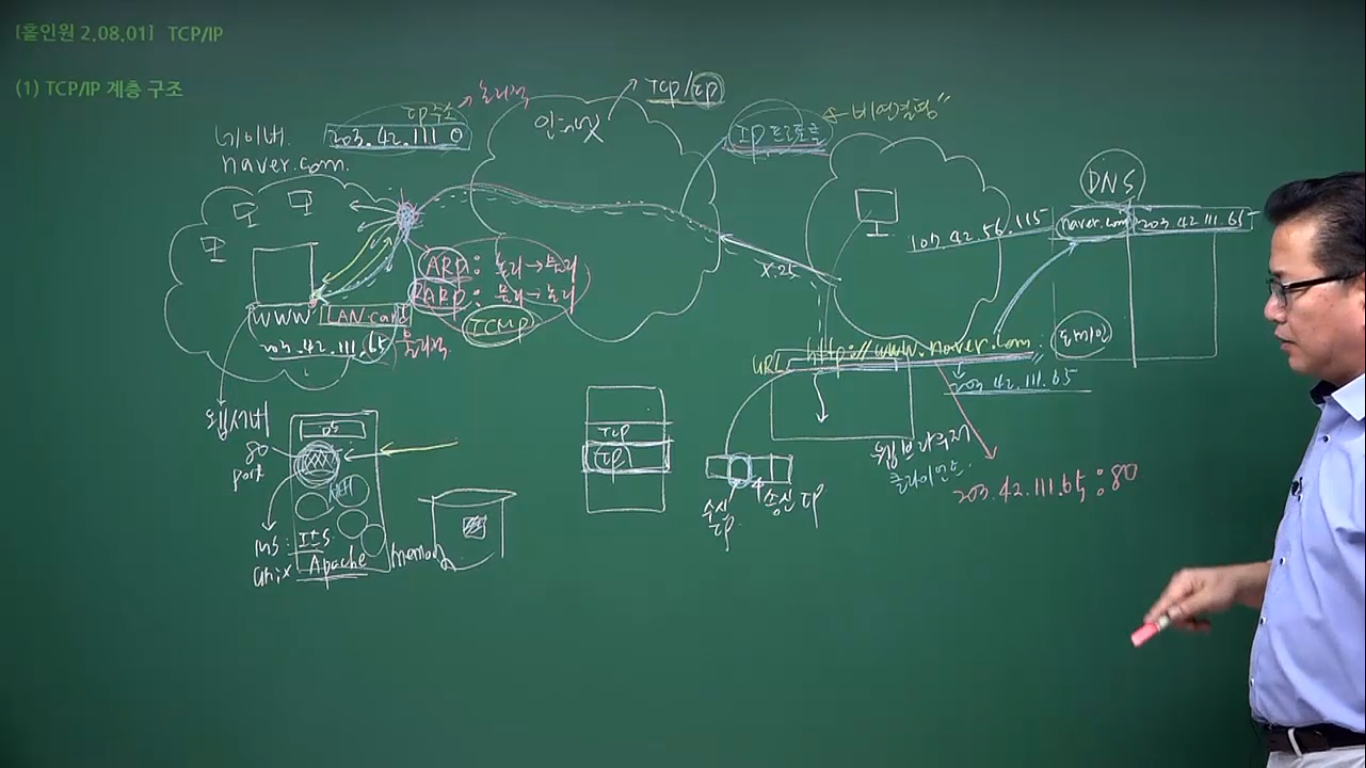 [홀인원 2.08.01] TCP/IP
(1) TCP/IP 계층 구조
TCP/IP
IP주소 → 논리적
203.42.111.0
네이버
naver.com.
인터넷
IP프로토콜
비연결형"
DNS
naver.com 203.42.111.65
107.42.56.115
도메인
X.25
ARP: 논리→물리
RARP: 물리→논리
ICMP
WWW
LAN card
물리적
203.42.111.65
URL http://www.naver.com
203.42.111.65
웹브라우저
클라이언트
203.42.111.65:80
웹서버
80
port
OS
MS: IIS
unix Apache
memory
TCP
IP
수신
IP
송신 IP